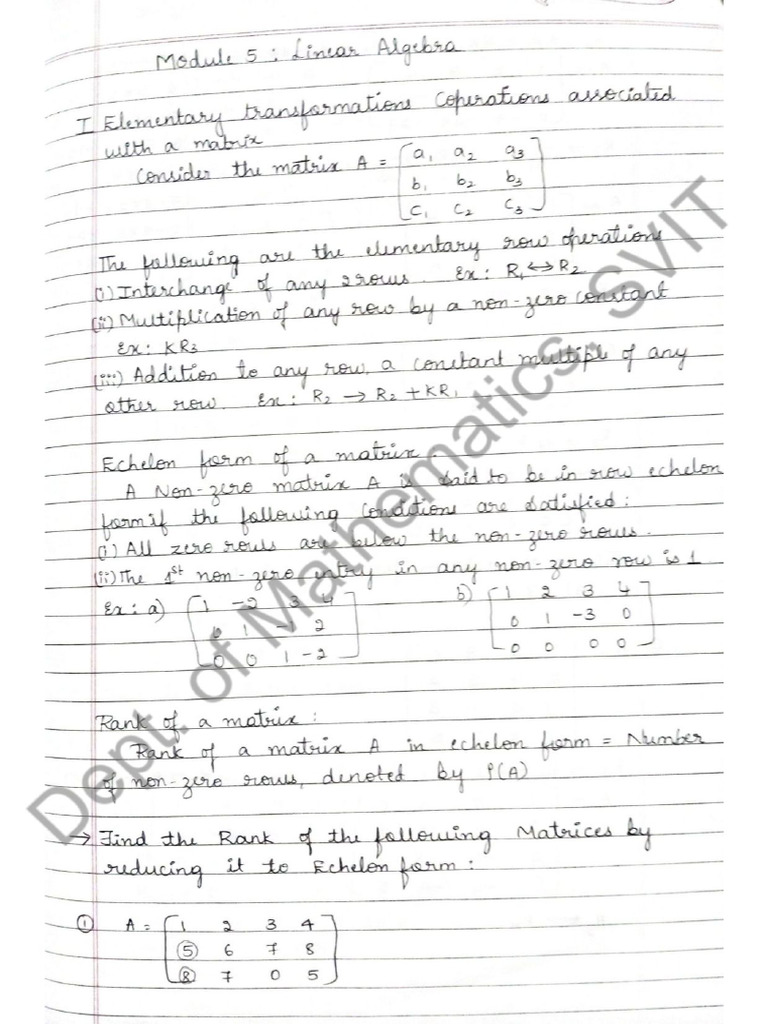 Module 5 : Linear Algebra
I Elementary transformations (operations associated
with a matrix
Consider the matrix A = [a₁ a₂ a₃
b₁ b₂ b₃
c₁ c₂ c₃]
The following are the elementary row operations
(i) Interchange of any 2 rows. Ex: R₁ ↔ R₂
(ii) Multiplication of any row by a non-zero constant
Ex: KR₃
(iii) Addition to any row, a constant multiple of any
other row. Ex: R₂ → R₂ + KR₁
Echelon form of a matrix.
A Non-zero matrix A is said to be in row echelon
form if the following conditions are satisfied:
(i) All zero rows are below the non-zero rows.
(ii) The 1st non-zero entry in any non-zero row is 1
Ex: a) [1 -2 3 4 b) [1 2 3 4
0 1 -1 2 0 1 -3 0
0 0 1 -2] 0 0 0 0]
Rank of a matrix :
Rank of a matrix A in echelon form = Number
of non-zero rows, denoted by ρ(A)
→ Find the Rank of the following Matrices by
reducing it to Echelon form :
① A = [1 2 3 4
⑤ 6 7 8
⑧ 7 0 5]
Dept. of Mathematics, SVIT